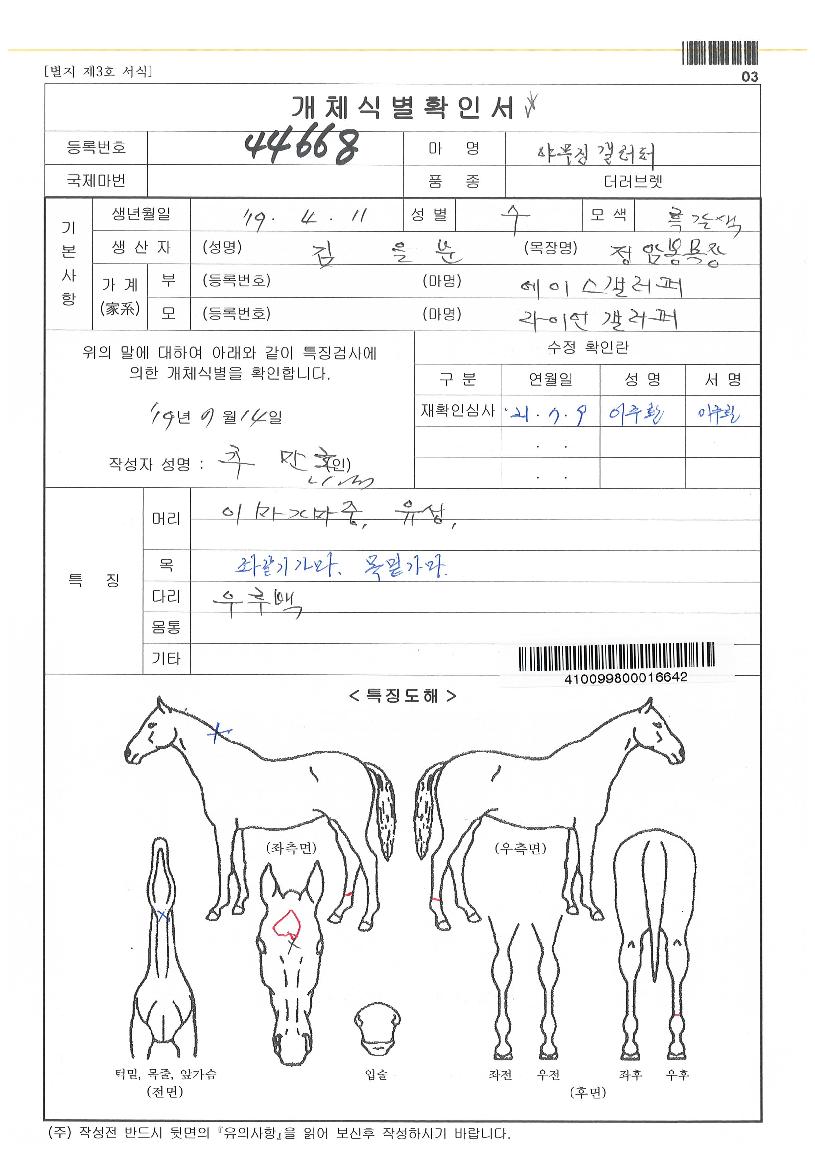 [별지 제3호 서식]
03
개체식별확인서
등록번호 44668 마 명 야무진갤러퍼
국제마번 품 종 더러브렛
기본사항
생년월일 '19. 4. 11 성별 수 모색 흑갈색
생산자 (성명) 김 을 분 (목장명) 정암봉목장
가계(家系) 부 (등록번호) (마명) 에이스갤러퍼
모 (등록번호) (마명) 라이언갤러퍼
위의 말에 대하여 아래와 같이 특징검사에
의한 개체식별을 확인합니다.
'19년 9월 14일
작성자 성명 : (인)
수정 확인란
구분 연월일 성명 서명
재확인심사 '21. 7. 9
. .
. .
특 징
머리 이마가마중, 유성,
목 좌갈기가마. 목밑가마.
다리 우후백
몸통
기타
410099800016642
< 특징도해 >
(좌측면) (우측면)
턱밑, 목줄, 앞가슴 입술 좌전 우전 좌후 우후
(전면) (후면)
(주) 작성전 반드시 뒷면의 『유의사항』을 읽어 보신후 작성하시기 바랍니다.